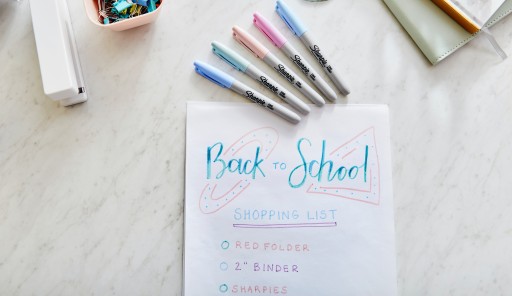 Sharpie
Sharpie
Sharpie
Sharpie
Sharpie
Back to School
SHOPPING LIST
RED FOLDER
2" BINDER
SHARPIES